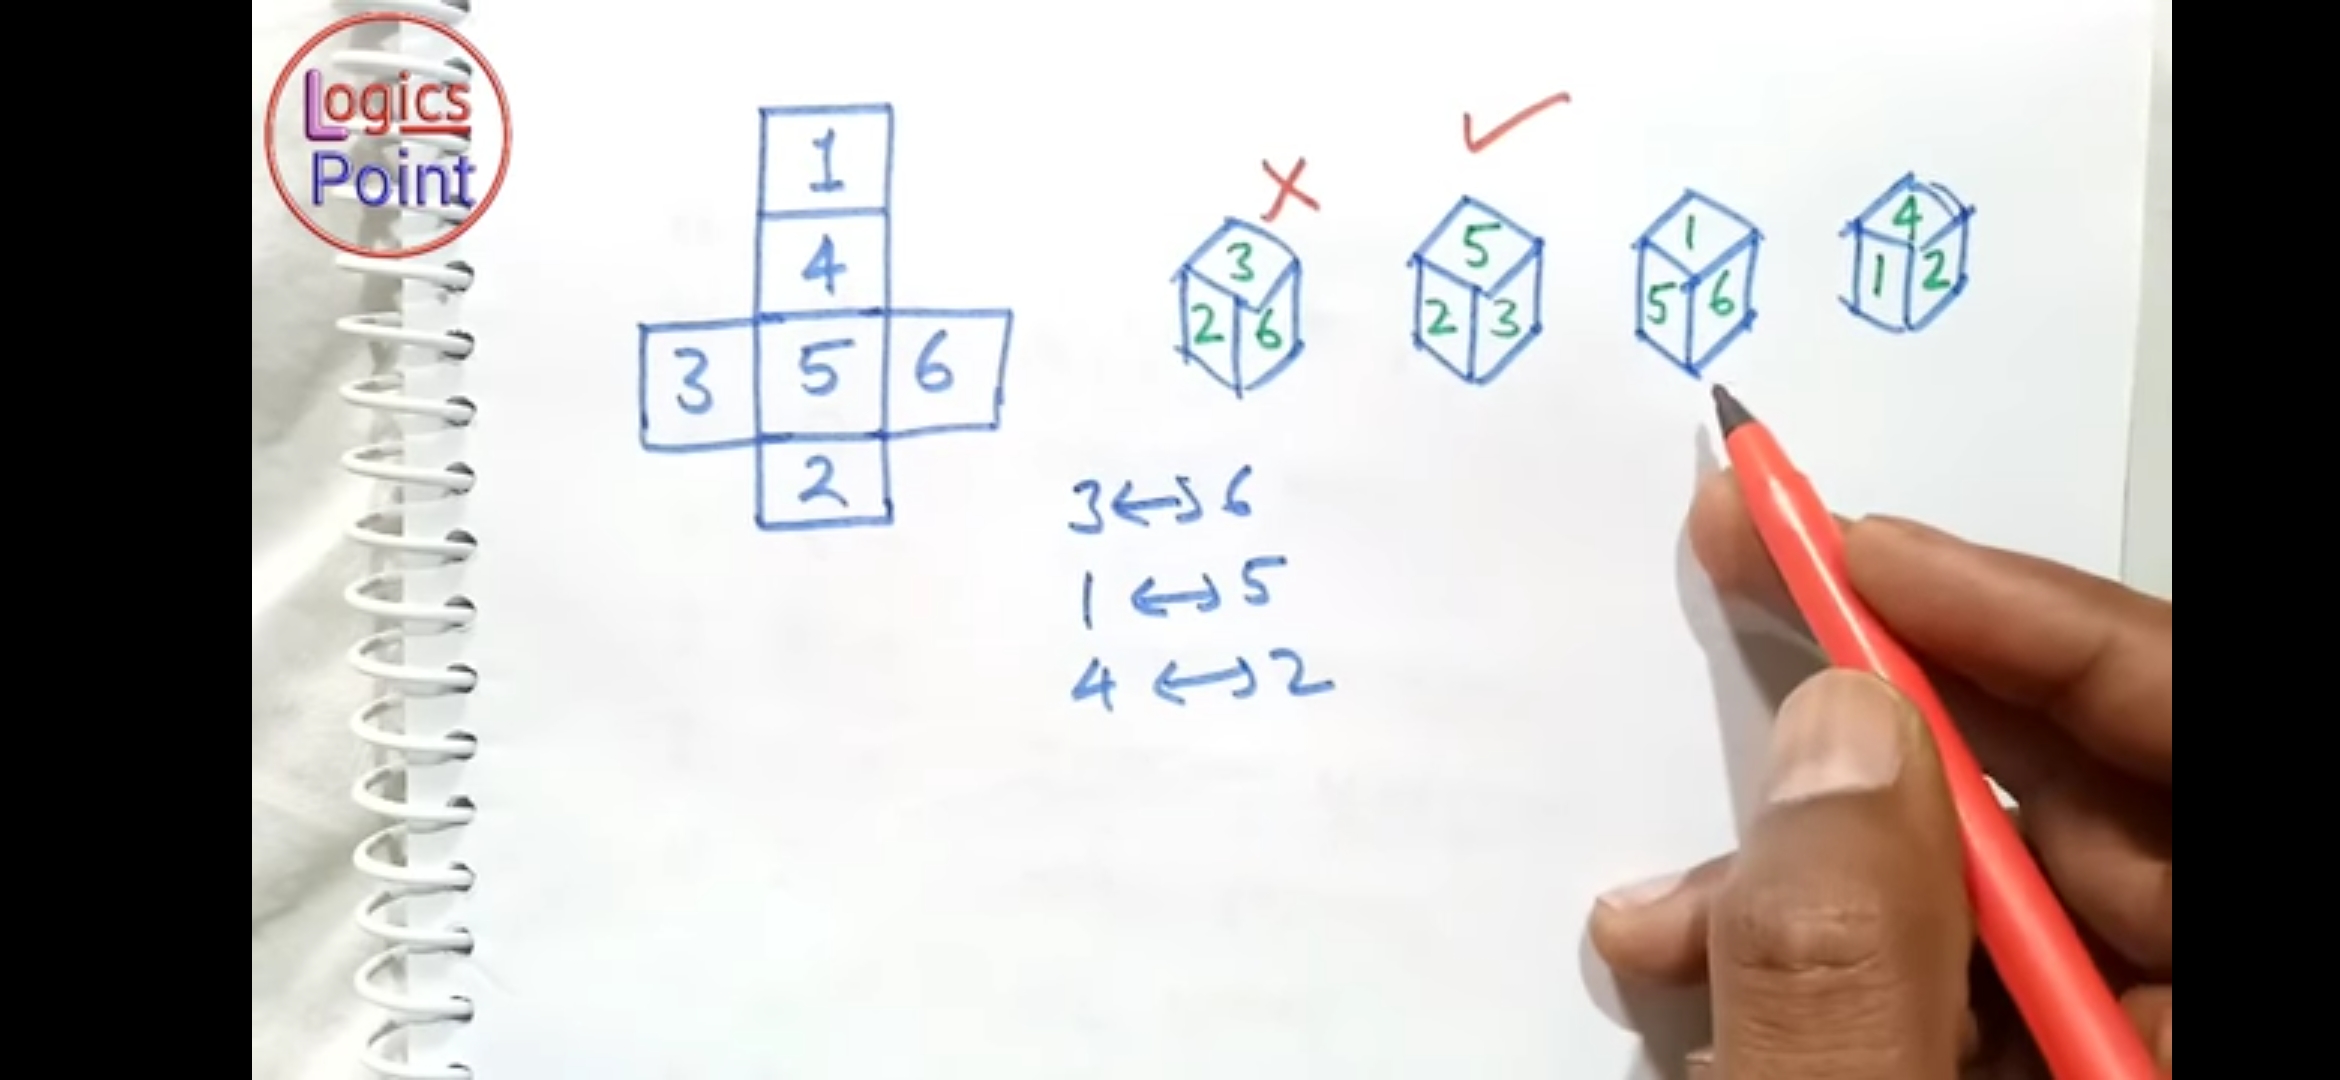 Logics
Point
1
4
3 5 6
2
3
2 6
5
2 3
1
5 6
4
1 2
3 ↔ 6
1 ↔ 5
4 ↔ 2